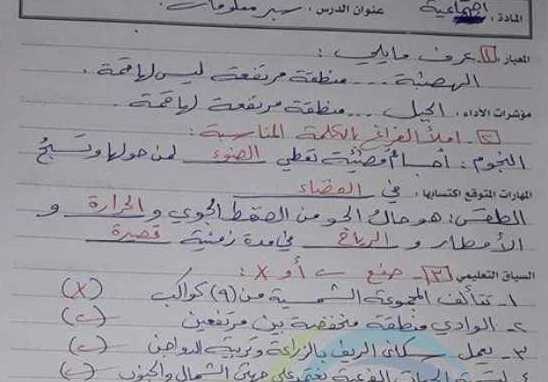 المادة: إجتماعية عنوان الدرس: سبر معلومات
المعيار: 1 عرف مايلي:
الهضبة .... منطقة مرتفعة ليس لها قمة.
مؤشرات الأداء: الجبل ... منطقة مرتفعة لها قمة.
2- املأ الفراغ بالكلمة المناسبة:
النجوم: أجسام مضيئة تعطي الضوء لمن حولها وتسبح
المهارات المتوقع اكتسابها: في الفضاء
الطقس: هو حالة الجو من الضغط الجوي و الحرارة و
الأمطار و الرياح في مدة زمنية قصيرة
السياق التعليمي 3- ضع أو x:
1- تتألف المجموعة الشمسية من (9) كواكب (x)
2- الوادي منطقة منخفضة بين مرتفعين
3- يعمل سكان الريف بالزراعة وتربية الدواجن